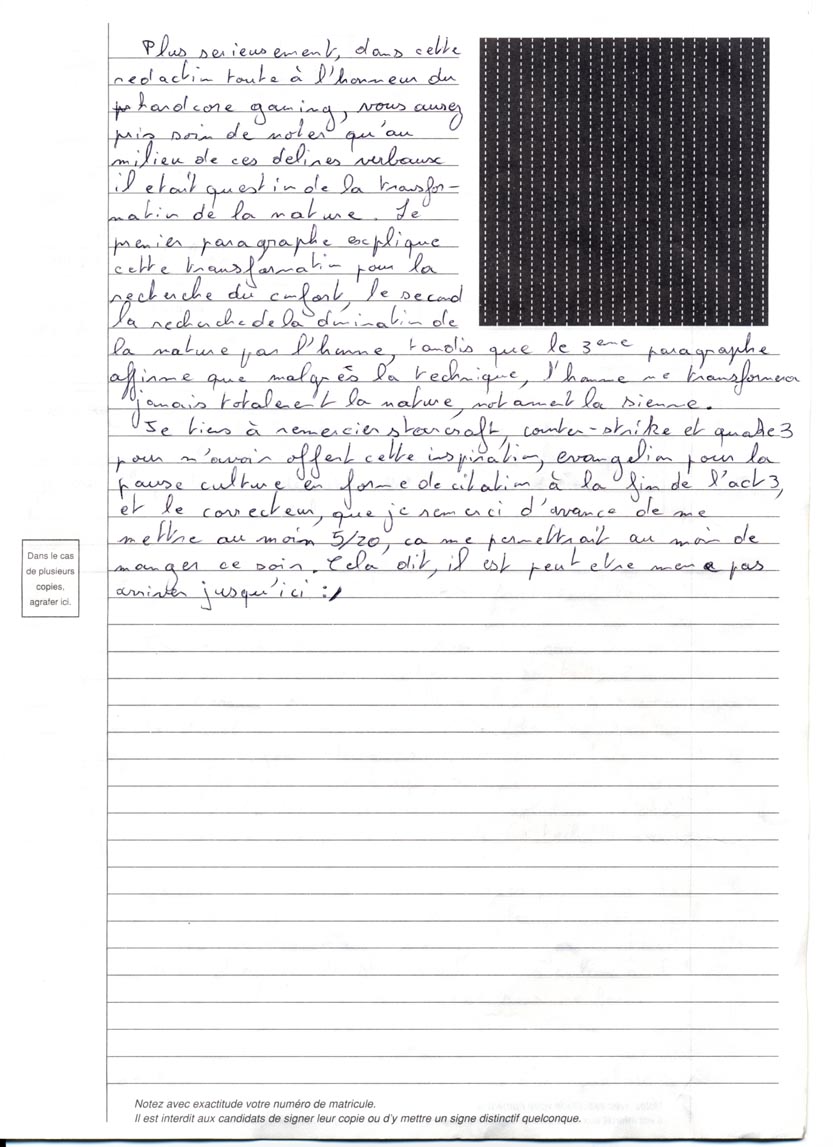 Plus serieusement, dans cette
redactin toute à l'honneur du
hardcore gaming, vous aurez
pris soin de noter qu'au
milieu de ces delires verbaux
il etait questin de la transfor-
matin de la nature. Le
premier paragraphe explique
cette transformatin pour la
recherche du confort, le second
la recherche de la dominatin de
la nature par l'homme, tandis que le 3eme paragraphe
affirme que malgrès la technique, l'homme ne transformera
jamais totalement la nature, notament la sienne.
Je tiens à remercier starcraft, counter-strike et quake 3
pour m'avoir offert cette inspiration, evangelion pour la
pause culture en forme de citation à la fin de l'act 3,
et le correcteur, que je remerci d'avance de me
mettre au moin 5/20, ca me permettrait au moin de
manger ce soir. Cela dit, il est peut etre meme pas
arriver jusqu'ici :/
Dans le cas
de plusieurs
copies,
agrafer ici.
Notez avec exactitude votre numéro de matricule.
Il est interdit aux candidats de signer leur copie ou d'y mettre un signe distinctif quelconque.